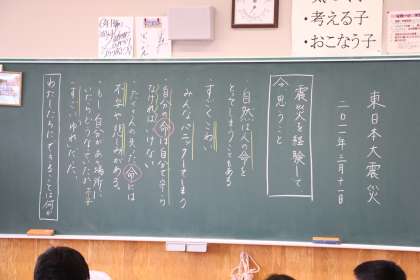 ・考える子
・おこなう子
東日本大震災
二〇一一年三月十一日
震災を経験して、
今思うこと
自然は人の命を
とってしまうこともある
・すごくこわい
みんなパニックでしまう
・自分の命は自分で守ら
なければいけない
・たくさんの失った命には
不安や悲しみがある。
・もし自分があの場所に
いたらどうなっていたか
・すごいゆれだった。
わたしたちにできることは何か